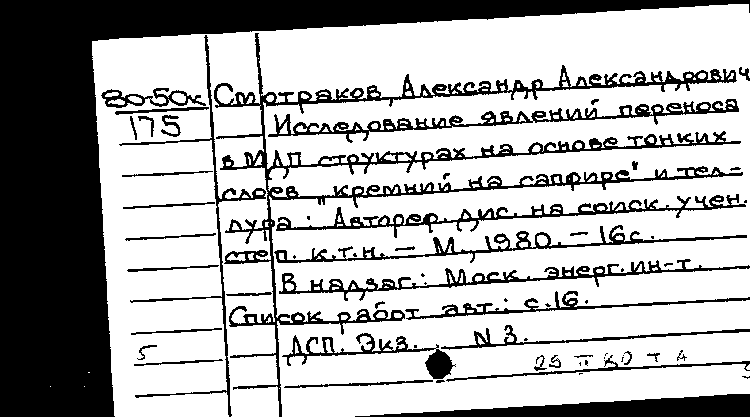 80-50к Смотраков, Александр Александрович
175 Исследование явлений переноса
в МДП структурах на основе тонких
слоев "кремний на сапфире" и тел-
лура : Автореф. дис. на соиск. учен.
степ. к.т.н. – М., 1980. – 16с.
В надзаг.: Моск. энерг. ин-т.
Список работ авт.: с.16.
5 ДСП. Экз. N 3.
29 II 80 т А